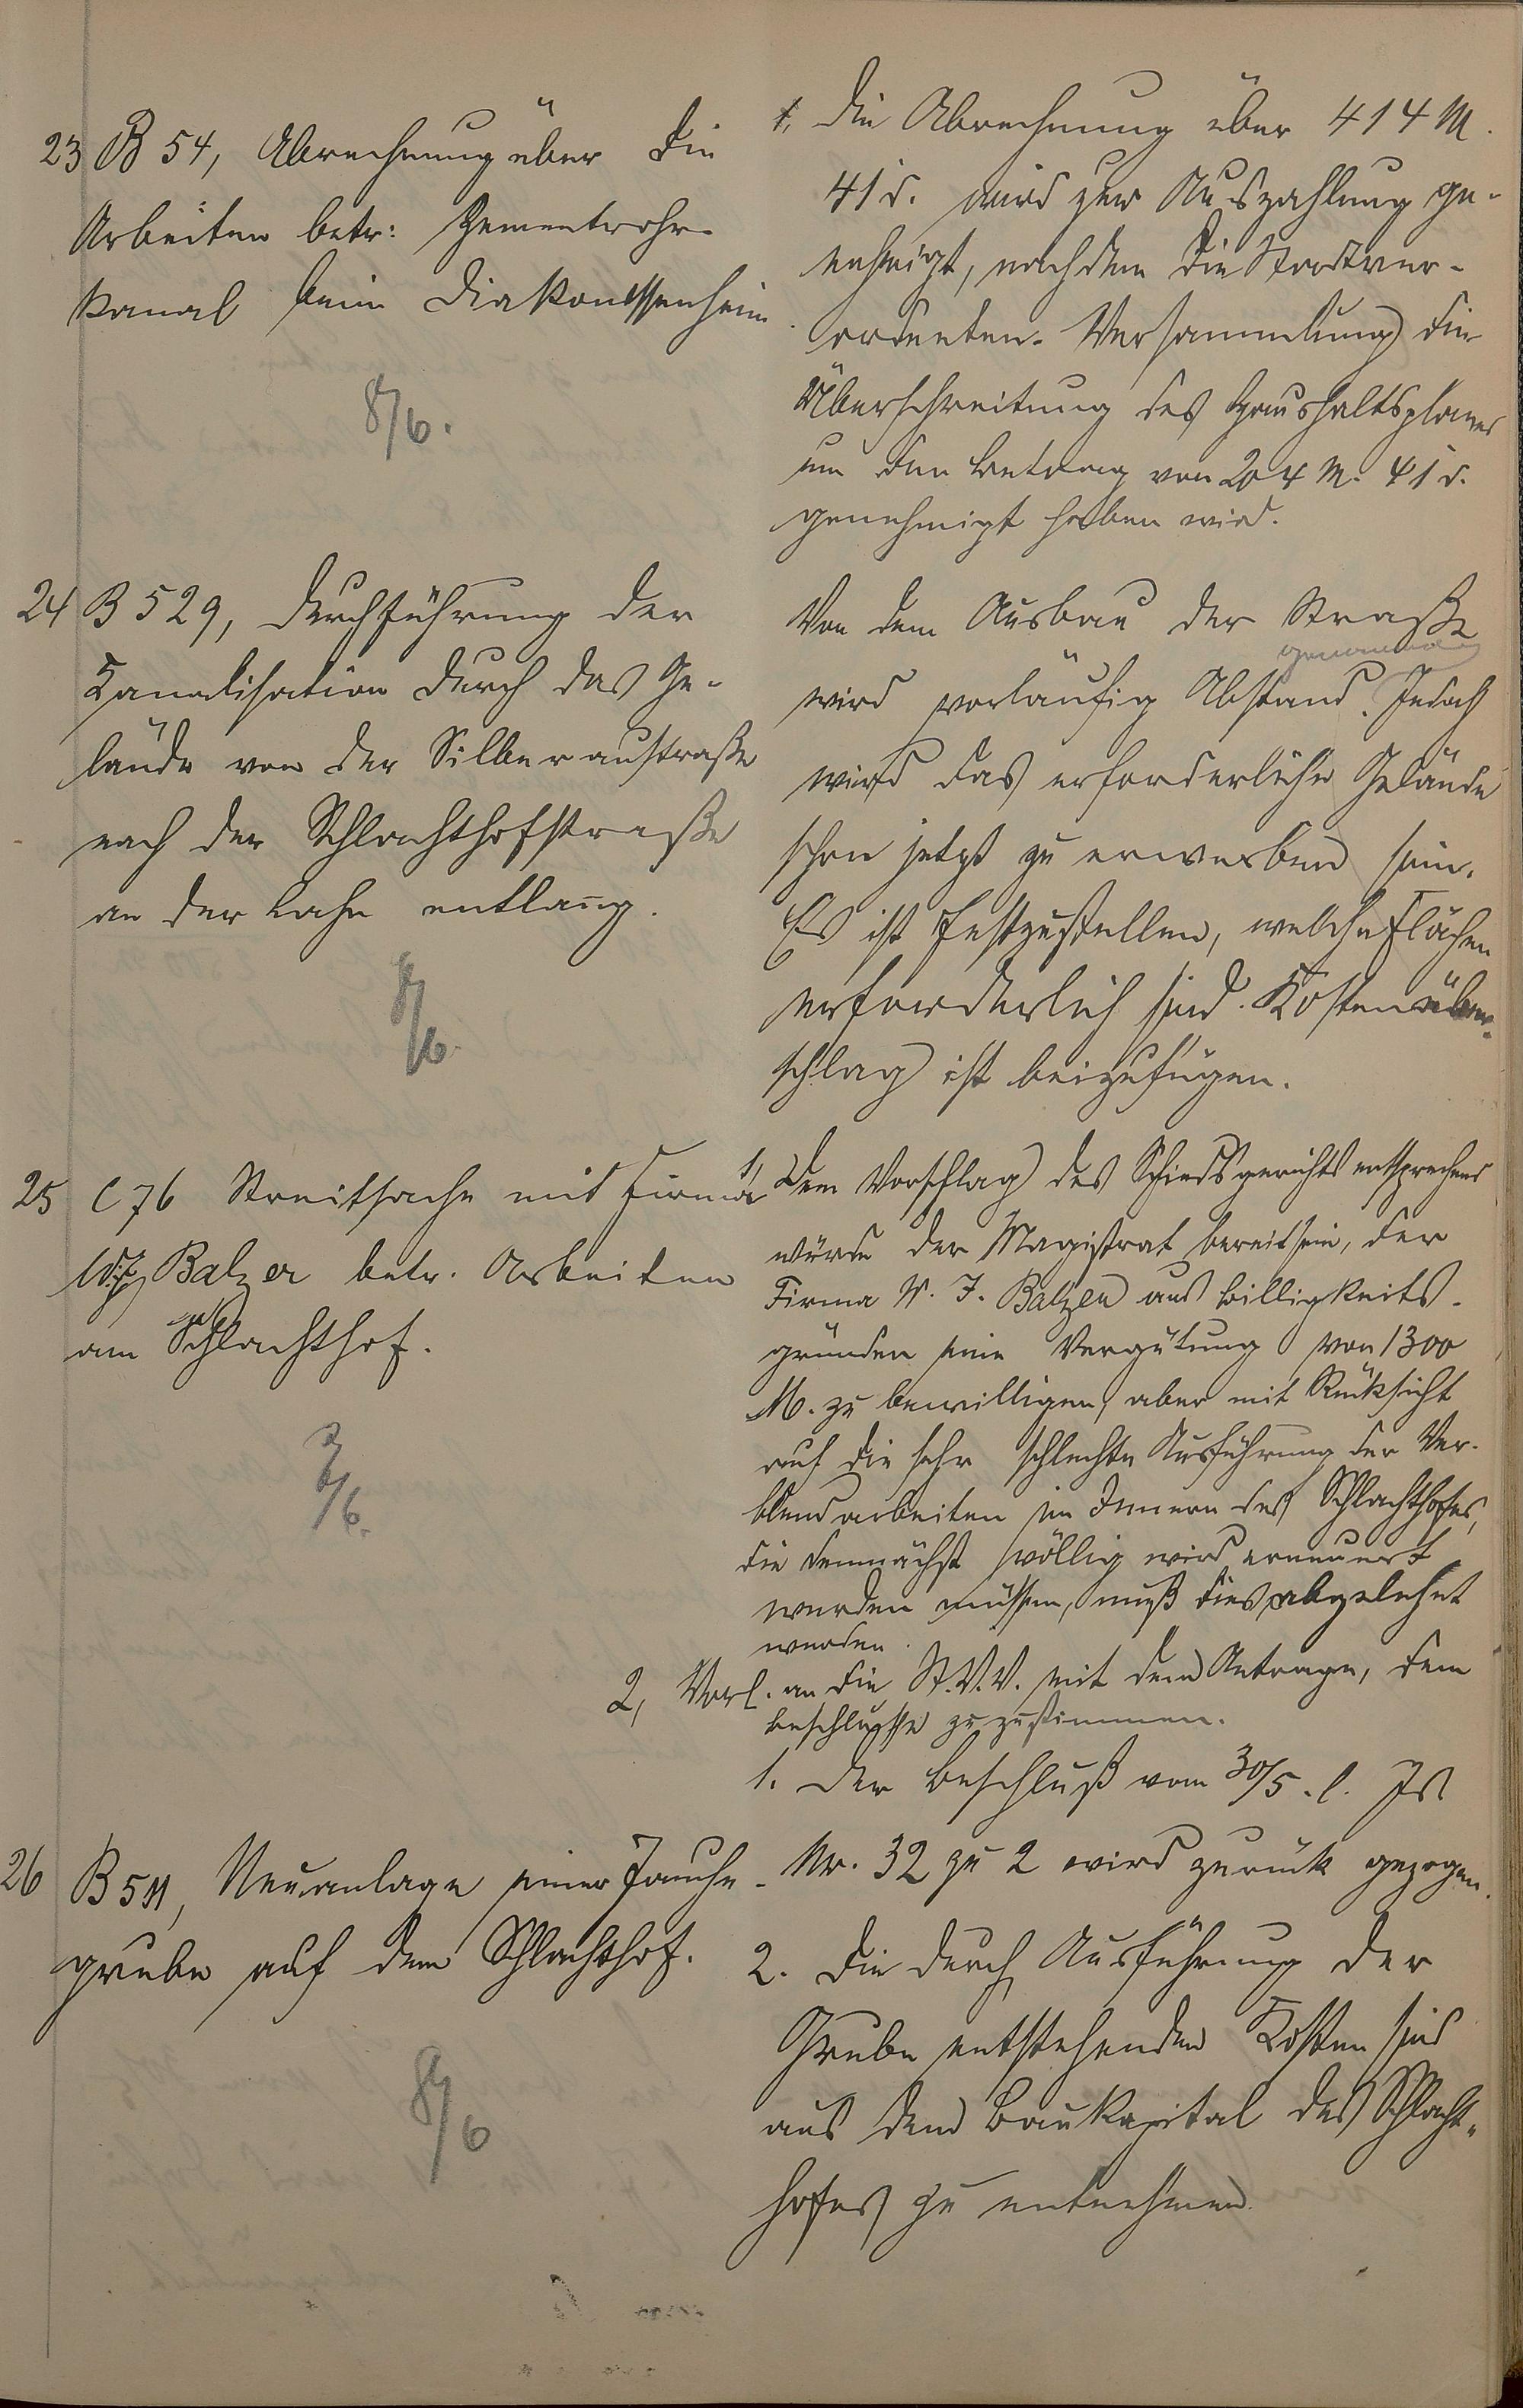 23 B 54, Abrechnung über die
Arbeiten betr: Zementrohr-
kanal beim Diakonissenheim.
8/6.
1, Die Abrechnung über 414 M.
41 d. wird zur Auszahlung ge-
nehmigt, nachdem die Stadtver-
ordneten-Versammlung die
Überschreitung des Haushaltsplanes
um den Betrag von 204 M. 41 d.
genehmigt haben wird.
24 B 529, Durchführung der
Kanalisation durch das Ge-
lände von der Silberaustraße
nach der Schlachthofstraße
an der Lahn entlang.
8/6.
Von dem Ausbau der Straße
genommen
wird vorläufig Abstand. Jedoch
wird das erforderliche Gelände
schon jetzt zu erwerben sein.
Es ist festzustellen, welche Flächen
erforderlich sind. Kostenüber-
schlag ist beizufügen.
25 C 76 Streitsache mit Firma
Balzer betr. Arbeiten
am Schlachthof.
/6.
1, Dem Vorschlag des Schiedsgerichts entsprechend
würde der Magistrat bereit sein, der
Firma W. J. Balzer aus Billigkeits-
gründen eine Vergütung von 1300
M. zu bewilligen, aber mit Rücksicht
auf die sehr schlechte Ausführung der Ver-
blendarbeiten im Innern des Schlachthofes,
die demnächst völlig wird erneuert
werden müssen, muß dies abgelehnt
werden.
2, Vorl. an die St.V.V. mit dem Antrage, dem
Beschlusse zuzustimmen.
26 B 511, Neuanlage einer Jauche-
grube auf dem Schlachthof.
8/6
1. Der Beschluß vom 30/5. l. Js
Nr. 32 zu 2 wird zurück gezogen.
2. Die durch Ausführung der
Grube entstehenden Kosten sind
aus dem Baukapital des Schlacht-
hofes zu entnehmen.